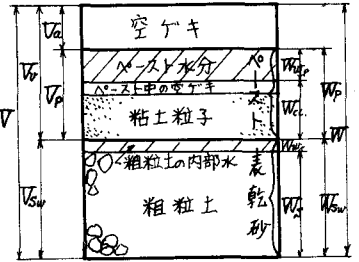 空ゲキ
ペースト水分
ペースト中の空ゲキ
粘土粒子
ペースト
粗粒土の内部水
粗粒土
表乾砂
V
Va
Vv
Vp
Vsw
Wp
W
Wsw